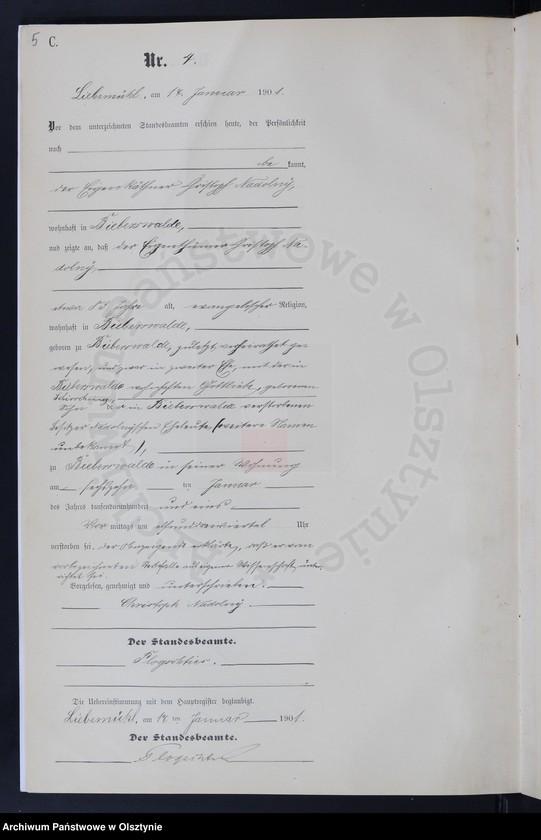 5 C.
Nr. 4.
Liebemühl, am 18. Januar 1901.
Vor dem unterzeichneten Standesbeamten erschien heute, der Persönlichkeit
nach
be kannt,
der Eigenkäthner Christoph Nadolny,
wohnhaft in Bieberswalde,
und zeigte an, daß der Eigenthümer Christoph Na-
dolny,
etwa 83 Jahre alt, evangelischer Religion,
wohnhaft in Bieberswalde,
geboren zu Bieberswalde, zuletzt verheirathet ge-
wesen, und zwar in zweiter Ehe, mit der in
Bieberswalde wohnhaften Gottliebe, geborenen
Sohn der in Bieberswalde verstorbenen
Besitzer Nadolnyschen Eheleute (weitere Namen
unbekannt),
zu Bieberswalde in seiner Wohnung
am sechszehn ten Januar
des Jahres tausendneunhundert und eins
Vor mittags um Uhr
verstorben sei. der Anzeigende erklärte, daß er von
vorbezeichneten Sterbfalle aus eigener Wissenschaft unter-
richtet sei.
Vorgelesen, genehmigt und unterschrieben.
Christoph Nadolny.
Der Standesbeamte.
Die Uebereinstimmung mit dem Hauptregister beglaubigt.
Liebemühl, am 18 ten Januar 1901.
Der Standesbeamte.
Archiwum Państwowe w Olsztynie
Archiwum Państwowe w Olsztynie